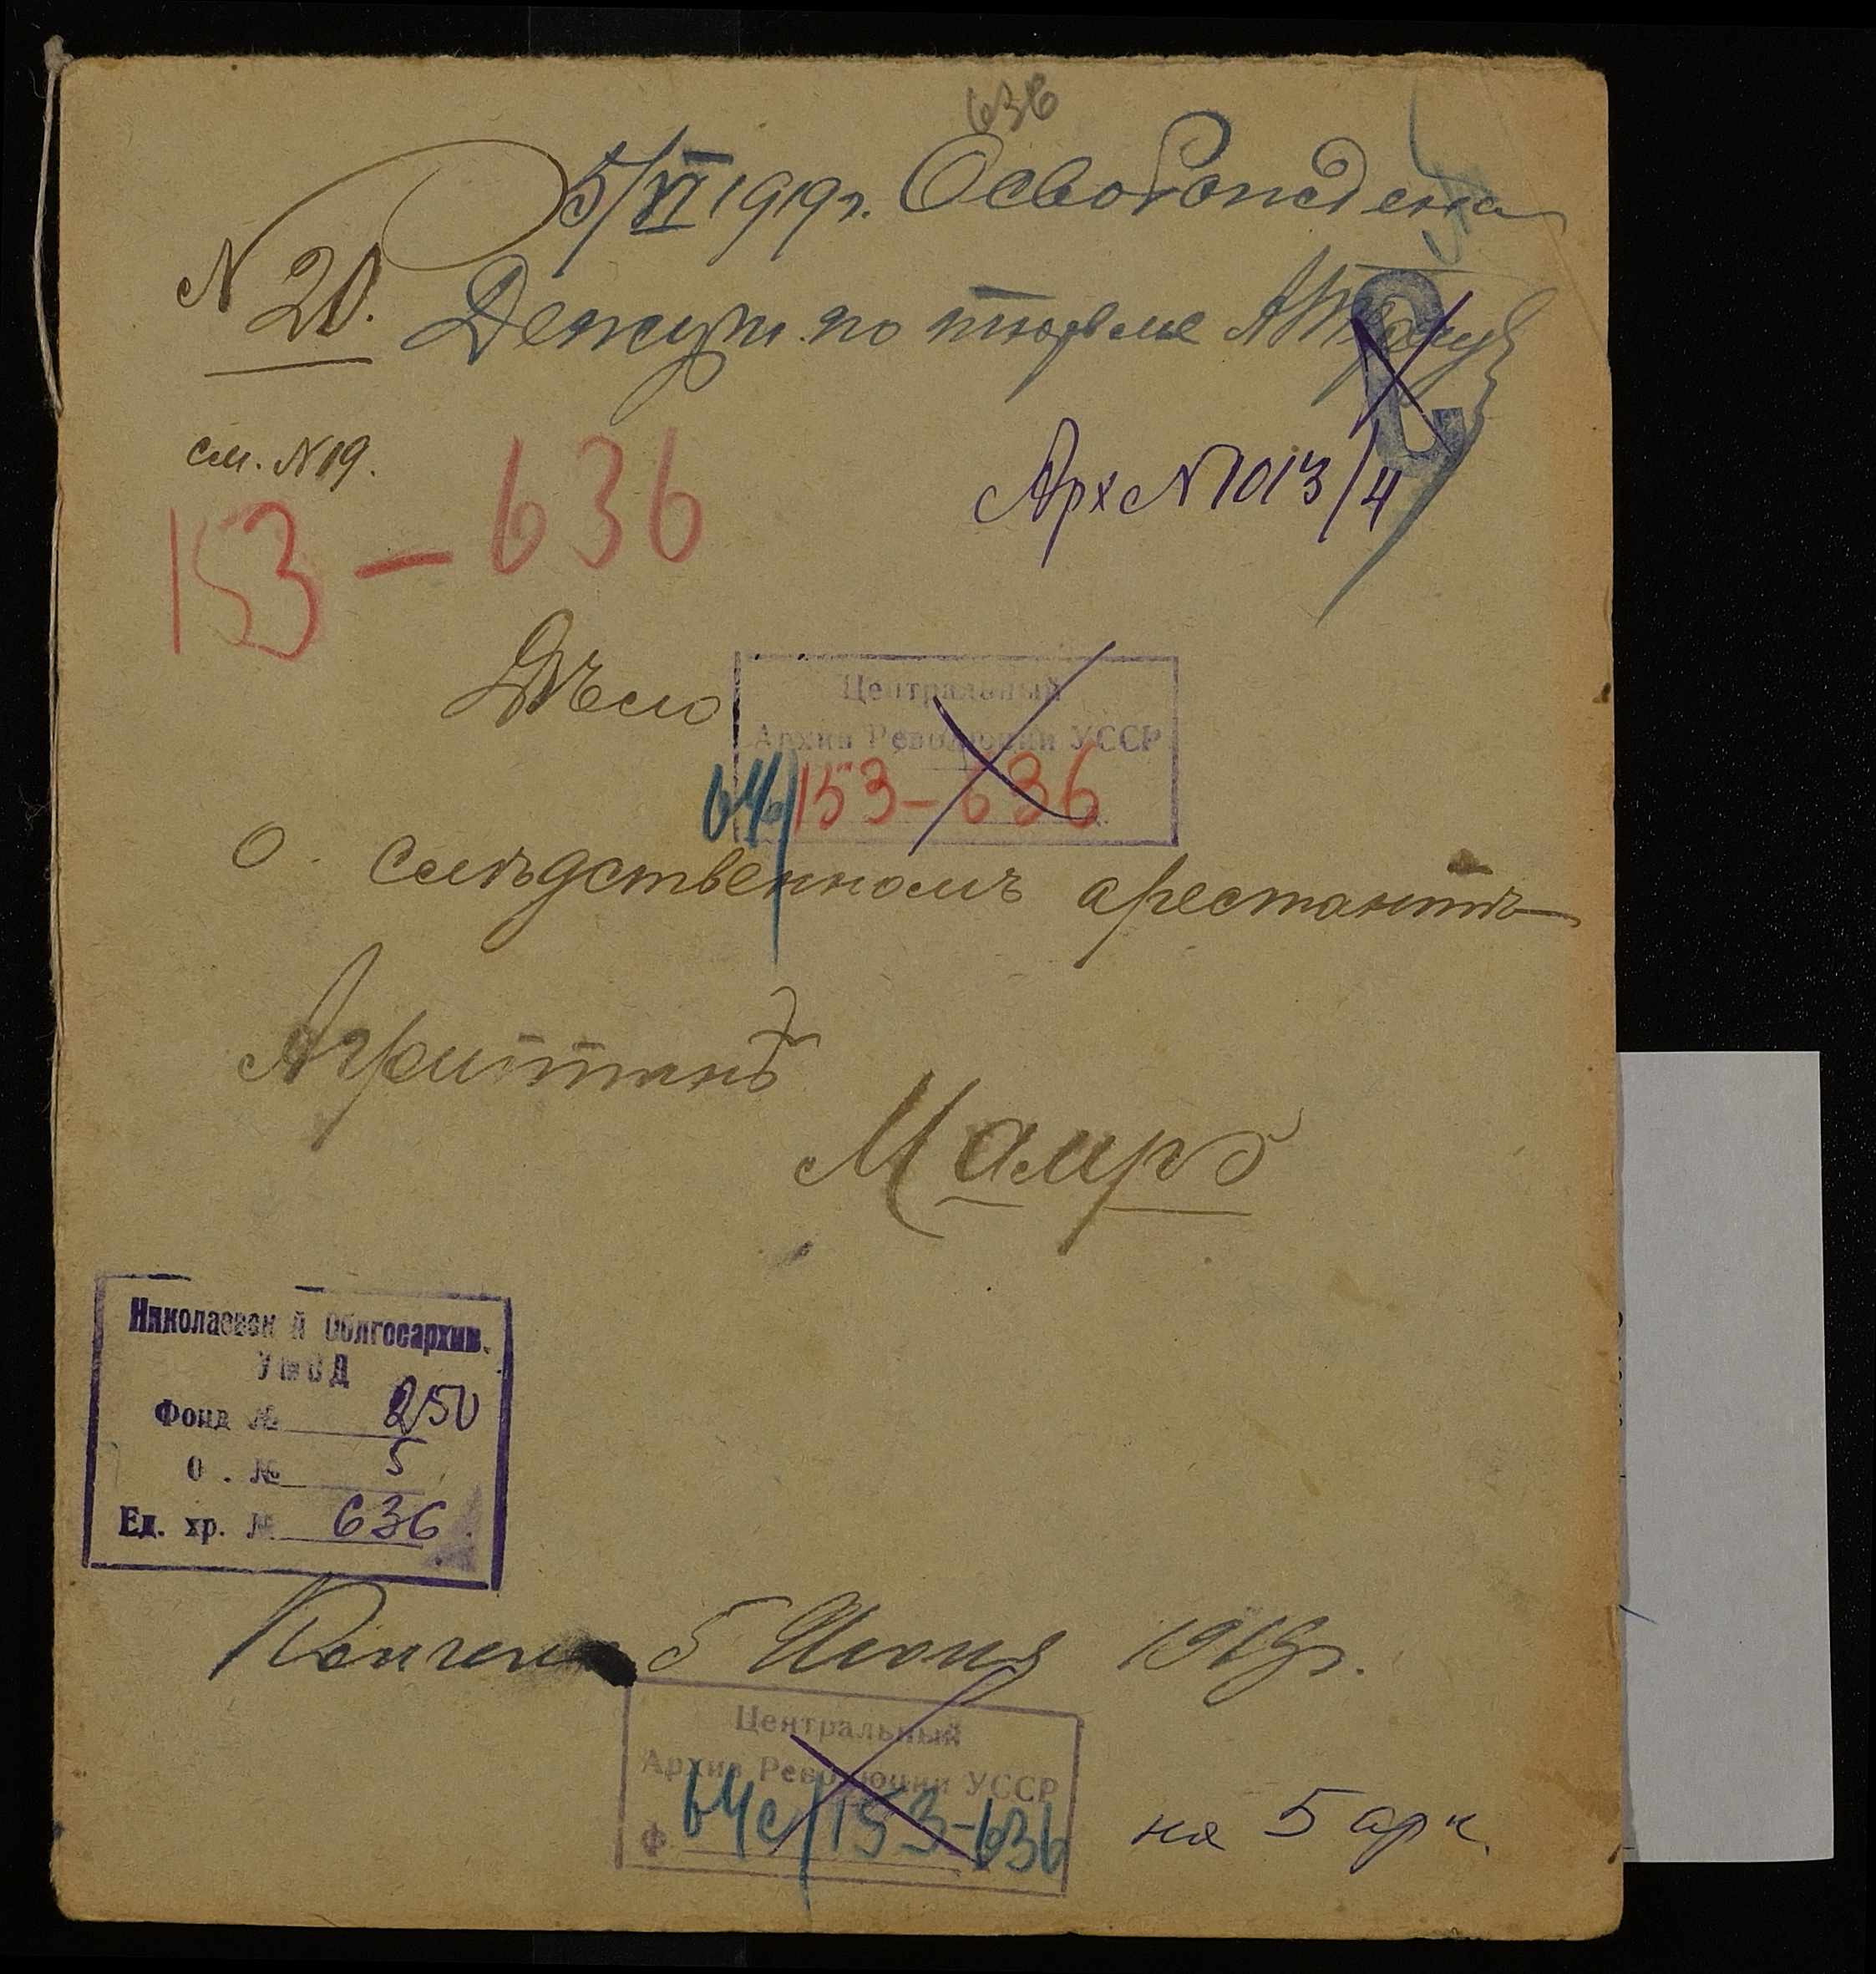 636
5/VI 1919 г. Освобожденъ
N 20.
Дежурн. по тюрьмѣ
см. N 19.
Арх N 1013/4
153 – 636
Дѣло
Центральный
Архив Революции УССР
64с/153–636
О слѣдственномъ арестантѣ
Маиръ
Николаевский Облгосархив.
УМВД
Фонд № 250
О . № 5
Ед. хр. № 636
Кончено 5 Июня 1919 г.
Центральный
Архив Революции УССР
Ф 64с/153–636
на 5 арк.